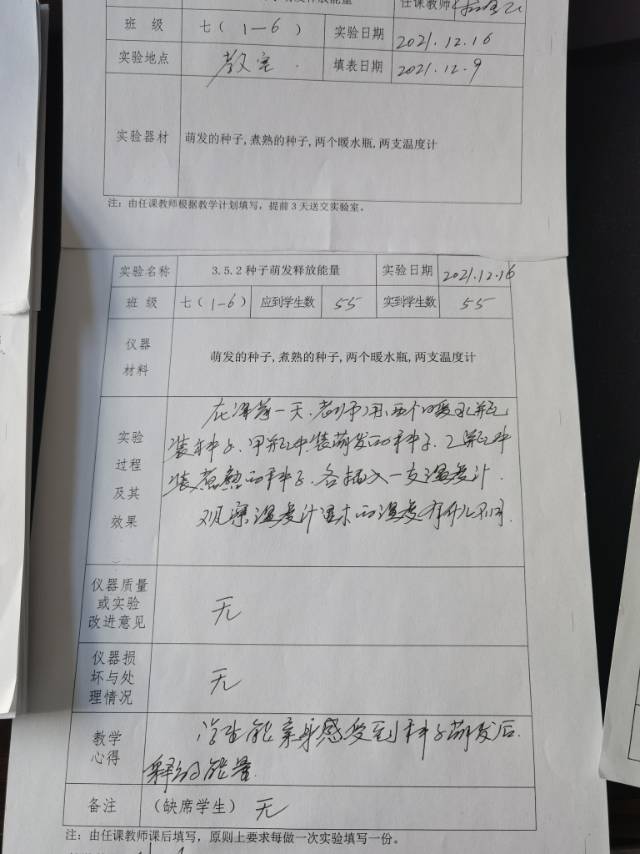 释放能量 任课教师
班 级 七(1-6) 实验日期 2021.12.16
实验地点 教室. 填表日期 2021.12.9
实验器材 萌发的种子,煮熟的种子,两个暖水瓶,两支温度计
注:由任课教师根据教学计划填写,提前3天送交实验室。
实验名称 3.5.2种子萌发释放能量 实验日期 2021.12.16
班 级 七(1-6) 应到学生数 55 实到学生数 55
仪器
材料
萌发的种子,煮熟的种子,两个暖水瓶,两支温度计
实验
过程
及其
效果
一天,老师用两个暖水瓶
装种子.甲瓶中装萌发的种子.乙瓶中
装煮熟的种子.各插入一支温度计.
观察温度计显示的温度有什么不同.
仪器质量
或实验
改进意见
无
仪器损
坏与处
理情况
无
教学
心得
学生能亲身感受到种子萌发后
释放能量.
备注 (缺席学生) 无
注:由任课教师课后填写,原则上要求每做一次实验填写一份。